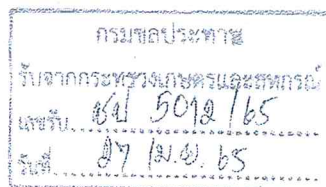 กรมชลประทาน
รับจากกระทรวงเกษตรและสหกรณ์
เลขรับ ชป 5012/65
วันที่ 27 เม.ย. 65